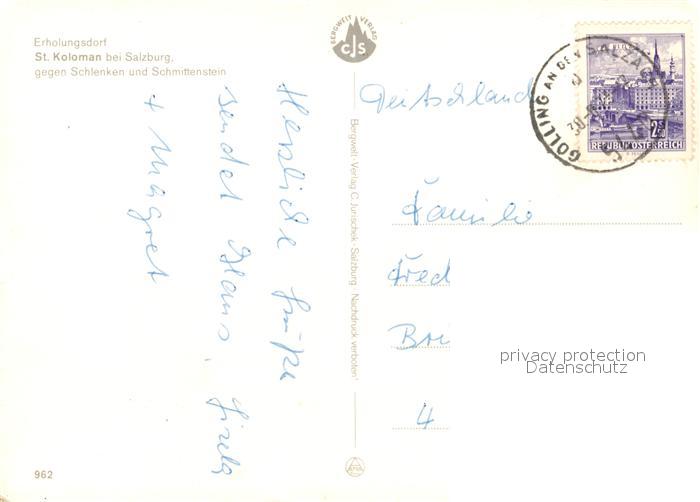 Erholungsdorf
St. Koloman bei Salzburg,
gegen Schlenken und Schmittenstein
BERGWELT VERLAG
CJS
Herzliche Grüße
sendet Klaus, Gisela
+ Margret
Bergwelt-Verlag C. Jurischek · Salzburg · Nachdruck verboten
Deutschland
GOLLING AN DER SALZACH
2 S
REPUBLIK ÖSTERREICH
Familie
Fred
4
privacy protection
Datenschutz
962